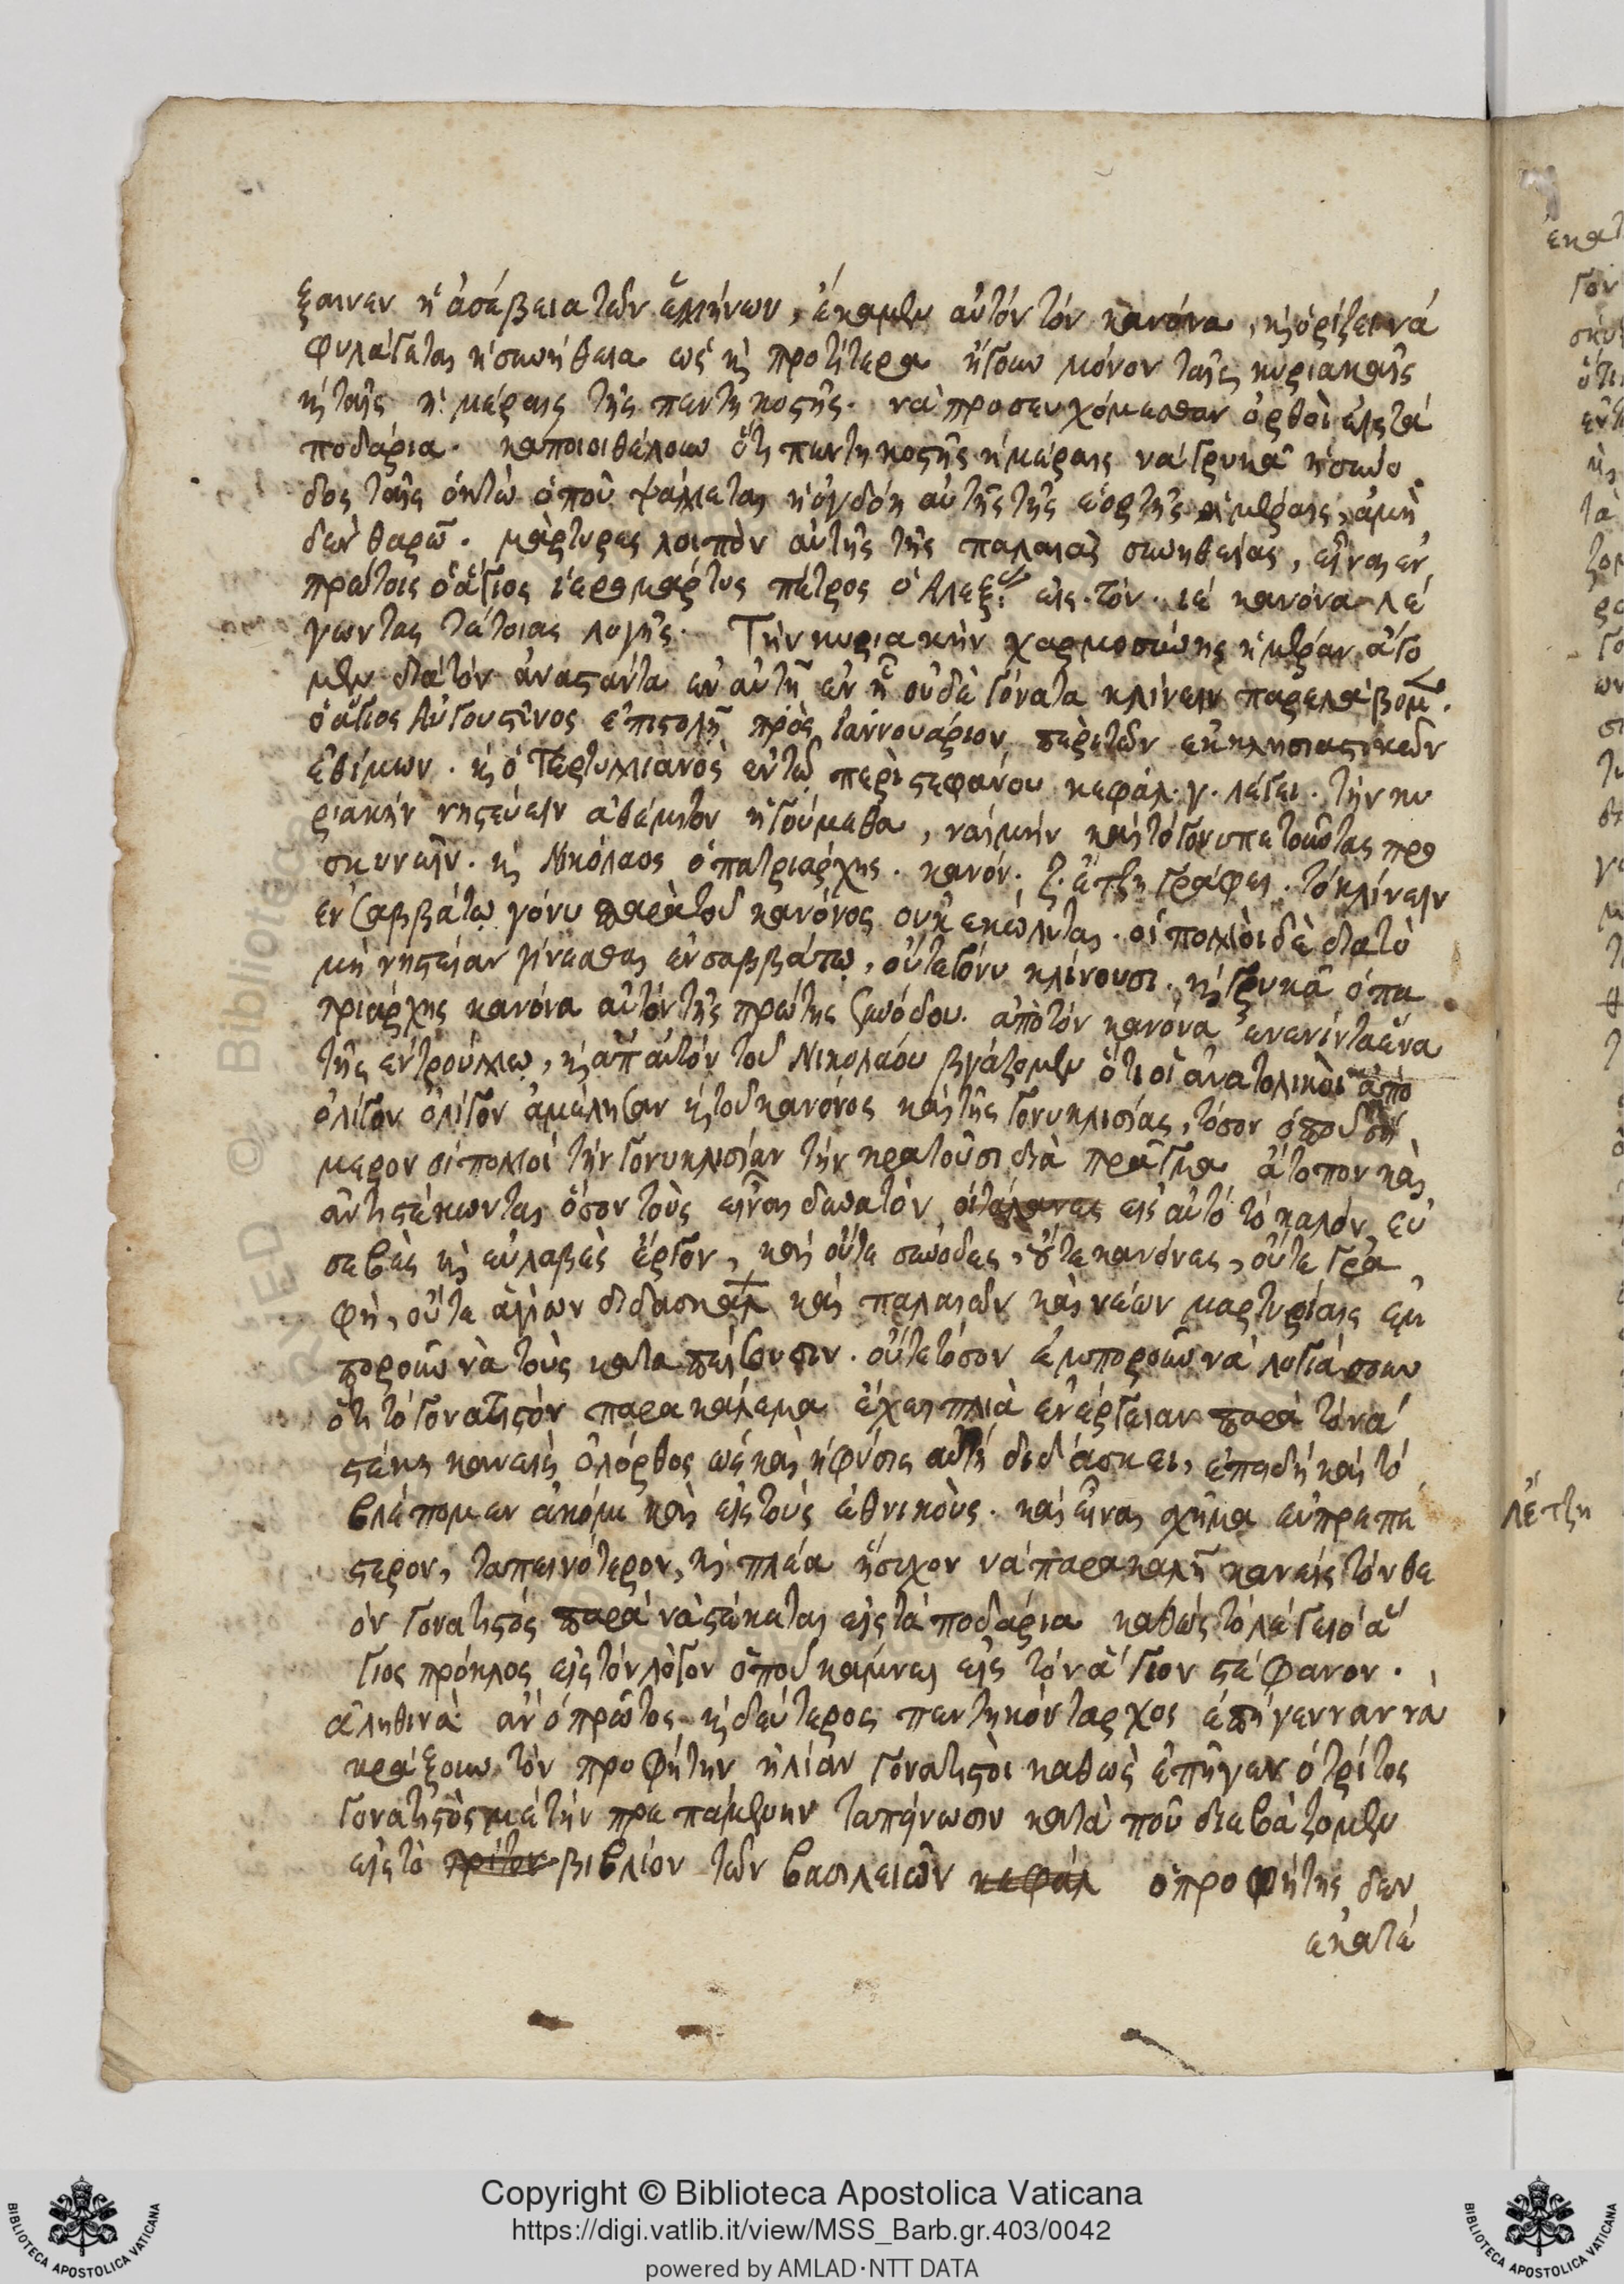 ξαινεν ἡ ἀσέβεια τῶν ἑλλήνων, ἔκαμεν αὐτόν τόν κανόνα, κὶ ὁρίζει νά
φυλάγεται ἡ συνήθεια ὡς κὶ προτήτερα ἤγουν μόνον ταῖς κυριακαῖς
κὶ ταῖς ἡμέραις τῆς πεντηκοστῆς. νὰ προσευχόμεσθαν ὀρθοὶ εἰς τά
ποδάρια. κάποιοι θέλουν ὅτι πεντηκοστῆς ἡμέραις νά γρυκᾶ ἡ σύνο
δος ταῖς ὀκτὼ ὁποῦ ψάλλεται ἡ ὀγδόη αὐτῆς τῆς ἑορτῆς ἡμέραις, ἀμὴ
δεν θαρῶ. μάρτυρες λοιπὸν αὐτῆς τῆς παλαιᾶς συνηθείας, εἶναι ἐν
πρώτοις ὁ ἅγιος ἱερομάρτυς πέτρος ὁ Αλεξ. εἰς τόν ιέ κανόνα λέ
γωντας τέτοιας λογῆς. Τὴν κυριακὴν χαρμοσύνης ἡμέραν ἄγο
μεν διὰ τόν ἀναστάντα ἐν αὐτῇ ἐν ᾗ οὐδὲ γόνατα κλίνειν παρελάβομ.
ὁ ἅγιος Αὐγουστῖνος ἐπιστολῇ πρὸς ἰαννουάριον περὶ τῶν ἐκκλησιαστικῶν
ἐθίμων. κὶ ὁ Τερτυλλιανὸς ἐν τῷ περὶ στεφάνου κεφάλ. γ. λέγει. τὴν κυ
ριακήν νηστεύειν ἀθέμιτον ἡγούμεθα, ναίμήν καὶ τό γονυπετοῦντας προ
σκυνεῖν. κὶ Νικόλαος ὁ πατριάρχης. κανόν. ζ. ἔτζη γράφει. τό κλίνειν
ἐν Σαββάτῳ γόνυ παρὰ τοῦ κανόνος οὐκ ἐκώλυται. οἱ πολλοὶ δὲ διὰ τὸ
μὴ νηστείαν γίνεσθαι ἐν σαββάτῳ, οὔτε γόνυ κλίνουσι. κὶ γρυκᾶ ὁ πα
τριάρχης κανόνα αὐτόν τῆς πρώτης Συνόδου. ἀπὸ τόν κανόνα ἐνενίντα ἕνα
τῆς ἐν τρούλλῳ, κὶ ἀπ αὐτόν τοῦ Νικολάου βγάζομεν ὅτι οἱ ἀνατολικοὶ ἀπὸ
ὀλίγον ὀλίγον ἀμέλησαν κὶ τοῦ κανόνος καὶ τῆς γονυκλισίας, τόσον ὁποῦ σή
μερον οἱ πολλοί τήν γονυκλισίαν τήν κρατοῦσι διὰ πρᾶγμα ἄτοπον καὶ
ἀντιστέκωνται ὅσον τοὺς εἶναι δυνατὸν εἰς αὐτό τό καλόν, εὐ
σεβὲς κὶ εὐλαβὲς ἔργον, καὶ οὔτε συνόδες, οὔτε κανόνες, οὔτε γρα
φή, οὔτε ἁγίων διδασκάλ καὶ παλαιῶν καὶ νέων μαρτυρίαις ἐμ
ποροῦν νὰ τοὺς καταπείσουσιν. οὔτε τόσον ἐμποροῦν νά λογιάσουν
ὅτι τό γονατιστόν παρακάλεμα ἔχει πλιὰ ἐνέργειαν παρά τό νά
στέκη κανεὶς ὁλόρθος ὡς καὶ ἡ φύσις αὐτή διδάσκει, ἐπειδή καὶ τό
βλέπομεν ἀκόμι καὶ εἰς τούς ἐθνικούς. καὶ εἶναι σχῆμα εὐπρεπέ
στερον, ταπεινότερον, κὶ πλέα ἥσυχον νά παρακαλῇ κανείς τόν θε
όν γονατιστός παρά νά στέκεται εἰς τά ποδάρια καθώς τό λέγει ὁ ἅ
γιος πρόκλος εἰς τόν λόγον ὁποῦ κάμνει εἰς τόν ἅγιον στέφανον.
ἀληθινὰ ἂν ὁ πρῶτος κὶ δεύτερος πεντηκόνταρχος ἐπήγενναν νὰ
κράξουν τόν προφήτην ἠλίαν γονατιστοὶ καθὼς ἐπῆγεν ὁ τρίτος
γονατιστὸς μέ τὴν πρεπάμενην ταπήνωσιν κατὰ ποῦ διαβάζομεν
εἰς τὸ τρίτον βιβλίον τῶν βασιλειῶν κεφάλ ὁ προφήτης δεν
ἐκατέ
λέτζη
Copyright © Biblioteca Apostolica Vaticana
https://digi.vatlib.it/view/MSS_Barb.gr.403/0042
powered by AMLAD·NTT DATA